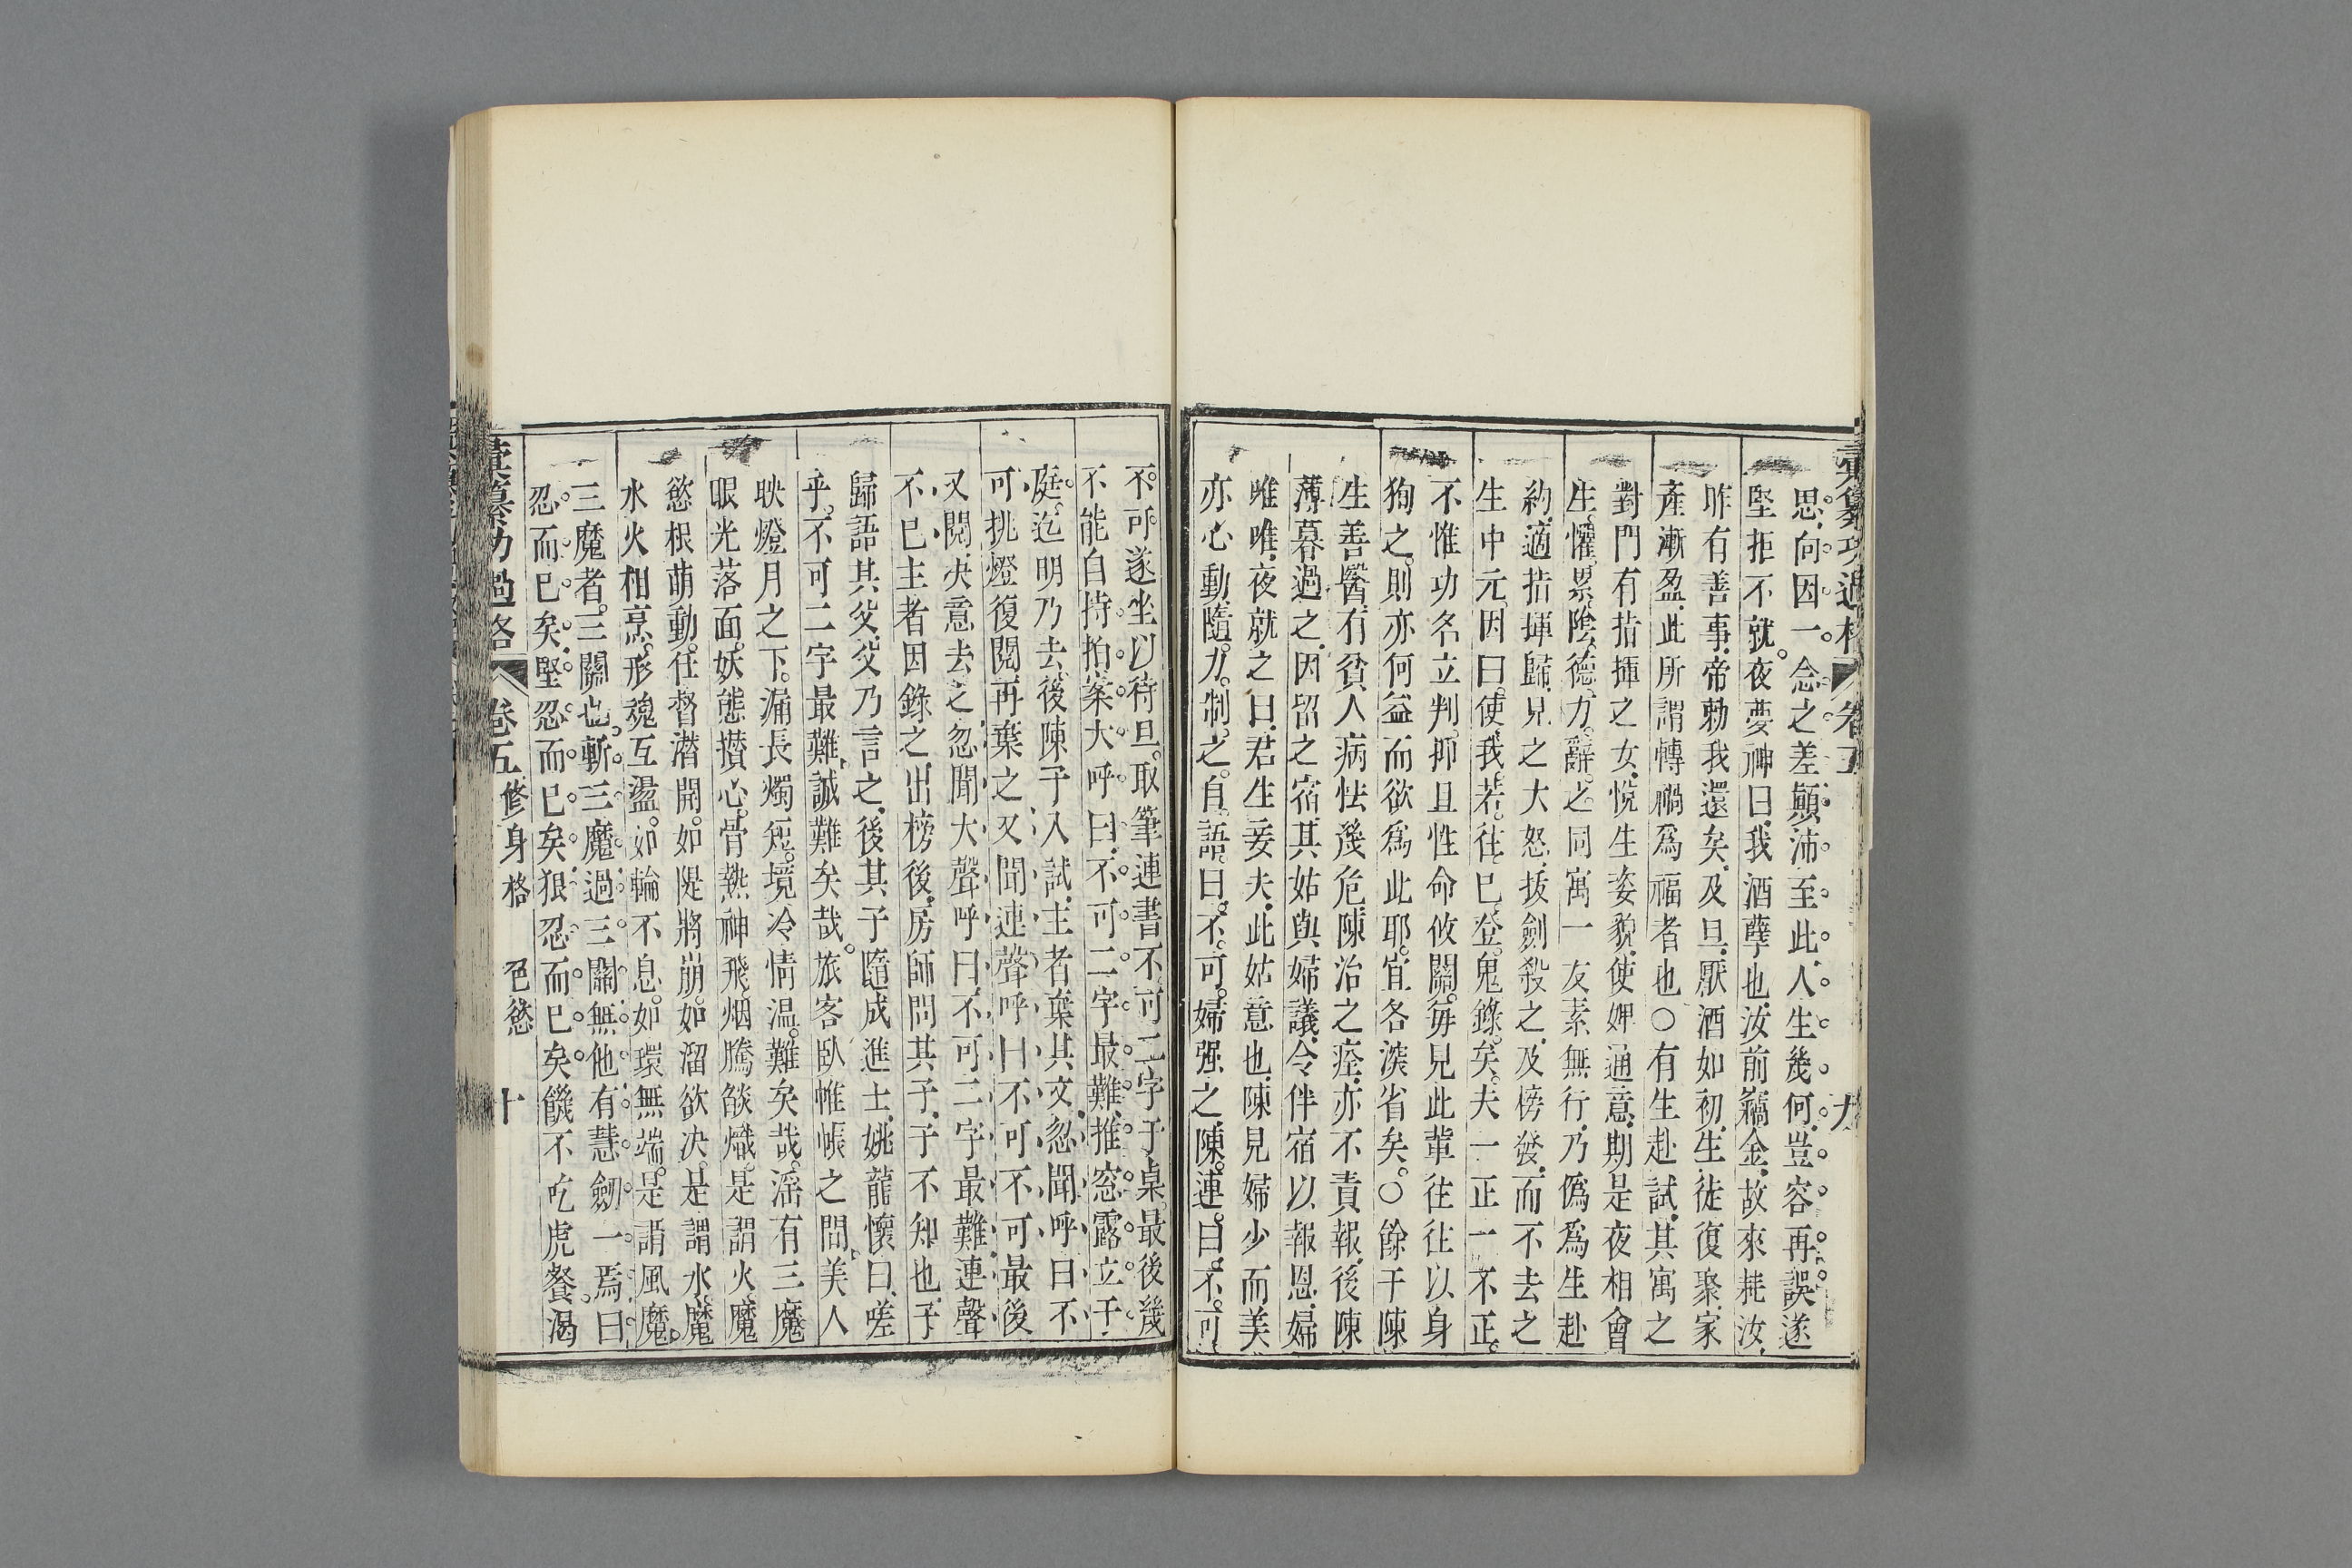 彙纂功過格 卷五 九
思向因一念之差顛沛至此人生幾何豈容再誤遂
堅拒不就夜夢神曰我酒孽也汝前竊金故來耗汝
昨有善事帝勅我還矣及旦厭酒如初生徒復聚家
產漸盈此所謂轉禍爲福者也○有生赴試其寓之
對門有指揮之女悅生姿貌使婢通意期是夜相會
生懼累陰德力辭之同寓一友素無行乃僞爲生赴
約適指揮歸見之大怒拔劍殺之及榜發而不去之
生中元因曰使我若往已登鬼錄矣夫一正一不正
不惟功名立判抑且性命攸關每見此輩往往以身
狥之則亦何益而欲爲此耶宜各深省矣○餘干陳
生善醫有貧人病怯幾危陳治之痊亦不責報後陳
薄暮過之因留之宿其姑與婦議令伴宿以報恩婦
唯唯夜就之曰君生妾夫此姑意也陳見婦少而美
亦心動隨力制之自語曰不可婦强之陳連曰不可
不可遂坐以待旦取筆連書不可二字于桌最後幾
不能自持拍案大呼曰不可二字最難推窓露立于
庭迄明乃去後陳子入試主者棄其文忽聞呼曰不
可挑燈復閱再棄之又聞連聲呼曰不可不可最後
又閱决意去之忽聞大聲呼曰不可二字最難連聲
不已主者因錄之出榜後房師問其子子不知也子
歸語其父父乃言之後其子隨成進士姚龍懷曰嗟
乎不可二字最難誠難矣哉旅客臥帷帳之間美人
映燈月之下漏長燭短境冷情温難矣哉淫有三魔
眼光落面妖態攢心骨熱神飛烟騰燄熾是謂火魔
慾根萌動任督潛開如隄將崩如溜欲决是謂水魔
水火相烹形魂互盪如輪不息如環無端是謂風魔
三魔者三關也斬三魔過三關無他有慧劒一焉曰
忍而已矣堅忍而已矣狠忍而已矣饑不吃虎餐渴
彙纂功過格 卷五 修身格 色慾 十